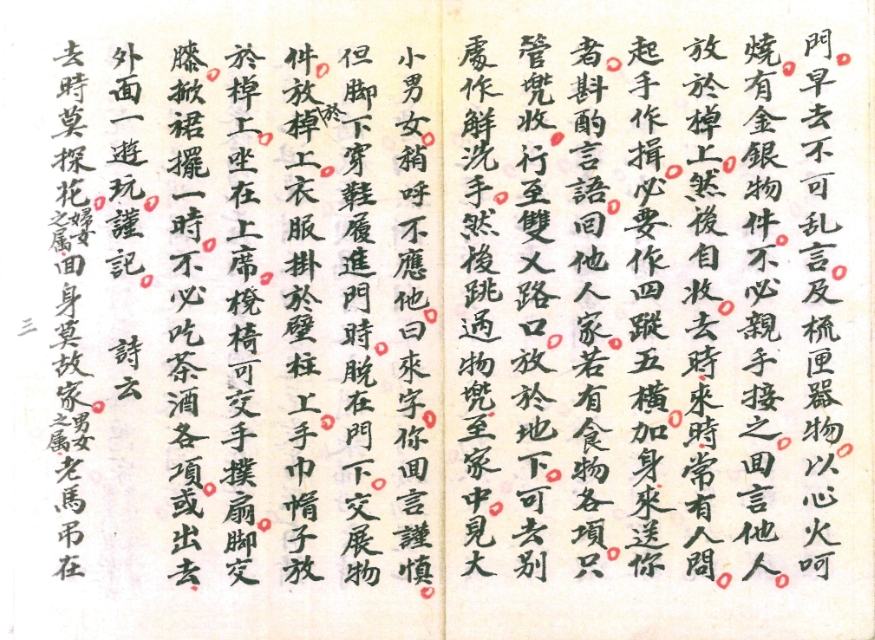 門早去不可乱言及梳匣器物以心火呵
燒有金銀物件不必親手接之回言他人
放於棹上然後自收去時來時常有人問
起手作揖必要作四蹤五橫加身來送你
者斟酌言語回他人家若有食物各項只
管兠收行至雙乂路口放於地下可去别
處作解洗手然後跳過物兠至家中見大
小男女稍呼不應他曰來字你回言謹慎
但脚下穿鞋履進門時脱在門下交展物
件放於棹上衣服掛於壁柱上手巾帽子放
於棹上坐在上席櫈椅可交手撲扇脚交
膝掀裙擺一時不必吃茶酒各項或出去
外面一遊玩謹記 詩云
去時莫探花婦女之属回身莫故家男女之属老馬吊在
三